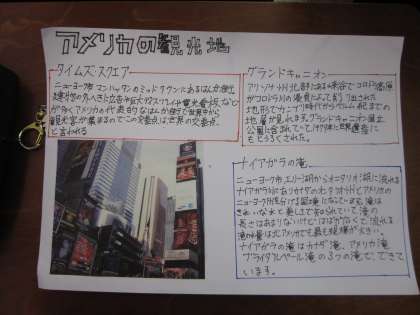 アメリカの観光地
タイムズ・スクエア
ニューヨーク市マンハッタンのミッドタウンにあるはんか街
建物の外へきに広告や巨大なスクリーン 電光看板など
が多くアメリカの代表的なはんか街で世界中から
観光客が集まるのでこの交差点は世界の交差点
と言われる
グランドキャニオン
アリゾナ州北部にある峡谷でコロラド高原
がコロラド川の浸食によって
地形でカンブリア時代からペルム紀までの
地層が見れます。グランドキャニオン国立
公園に含まれていて1979年に世界遺産に
もとうろくされた。
ナイアガラの滝
ニューヨーク市、エリー湖からオンタリオ湖に流れる
ナイアガラ川にありカナダのオンタリオ州とアメリカの
ニューヨーク州を分ける国境になっている。滝は
きれいな水と美しさで知られていて滝の
長さはあまりないけどはばが広くて流れる
滝の水量は北アメリカで最も規模が大きい。
ナイアガラの滝はカナダ滝、アメリカ滝
ブライダルベール滝の3つの滝で、できて
います。